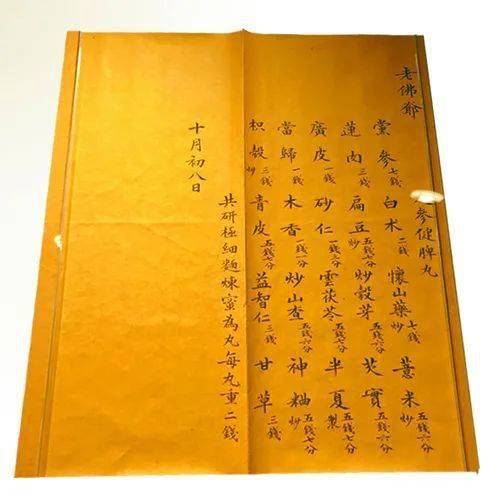 老佛爺
參健脾丸
黨參七錢 白术二錢 懷山藥炒七錢 薏米炒五錢六分
蓮肉三錢 扁豆炒五錢七分 炒穀芽五錢六分 芡實五錢六分
廣皮一錢 砂仁一錢三分 雲茯苓五錢七分 半夏製五錢七分
當歸一錢 木香一錢一分 炒山查五錢六分 神粬炒五錢七分
枳殼炒三錢 青皮五錢七分 益智仁三錢 甘草三錢
共研極細麵煉蜜為丸每丸重二錢
十月初八日